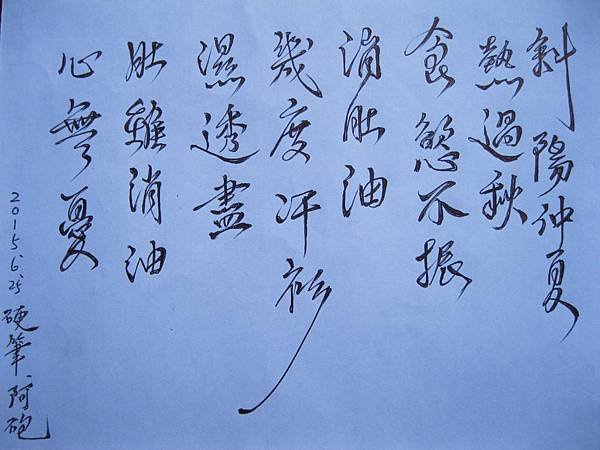 斜陽仲夏
熱過秋
食慾不振
消肚油
幾度汗衫
濕透盡
肚難消油
心無憂
2015.6.25 硬筆.阿砲